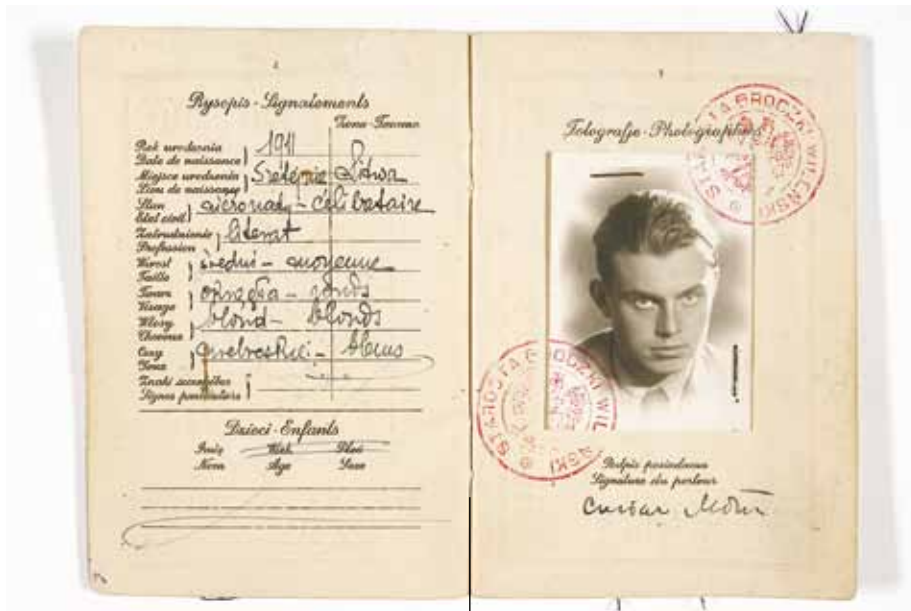 Rysopis - Signalements
Żona - Femme
Rok urodzenia
Date de naissance
1911
Miejsce urodzenia
Lieu de naissance
Litwa
Stan
Etat civil
célibataire
Zatrudnienie
Profession
literat
Wzrost
Taille
średni - moyenne
Twarz
Visage
okrągła -
Włosy
Cheveux
blond - blonds
Oczy
Yeux
Znaki szczególne
Signes particuliers
Dzieci - Enfants
Imię Wiek Płeć
Nom Age Sexe
Fotografje - Photographies
STAROSTA GRODZKI WILEŃSKI
STAROSTA GRODZKI WILEŃSKI
Podpis posiadacza
Signature du porteur